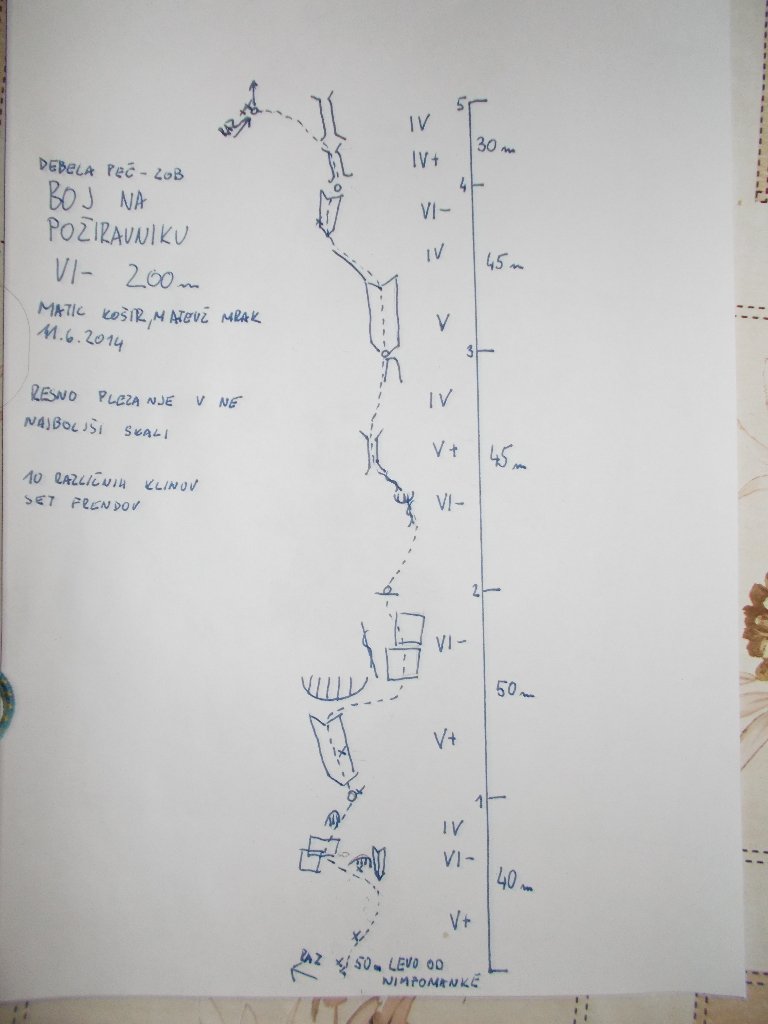 DEBELA PEČ - ZOB
BOJ NA
POŽIRAVNIKU
VI- 200m
MATIC KOŠIR, MATEVŽ MRAK
11.6.2014
RESNO PLEZANJE V NE
NAJBOLJŠI SKALI
10 RAZLIČNIH KLINOV
SET FRENDOV
RAZ
5
IV
30m
IV+
4
VI-
IV
45m
V
3
IV
V+
45m
VI-
2
VI-
50m
V+
1
IV
VI-
40m
V+
RAZ
50m LEVO OD
NIMFOMANKE